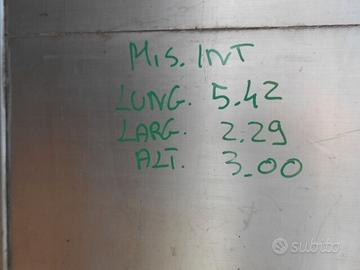 MIS. INT
LUNG. 5.42
LARG. 2.29
ALT. 3.00
subito